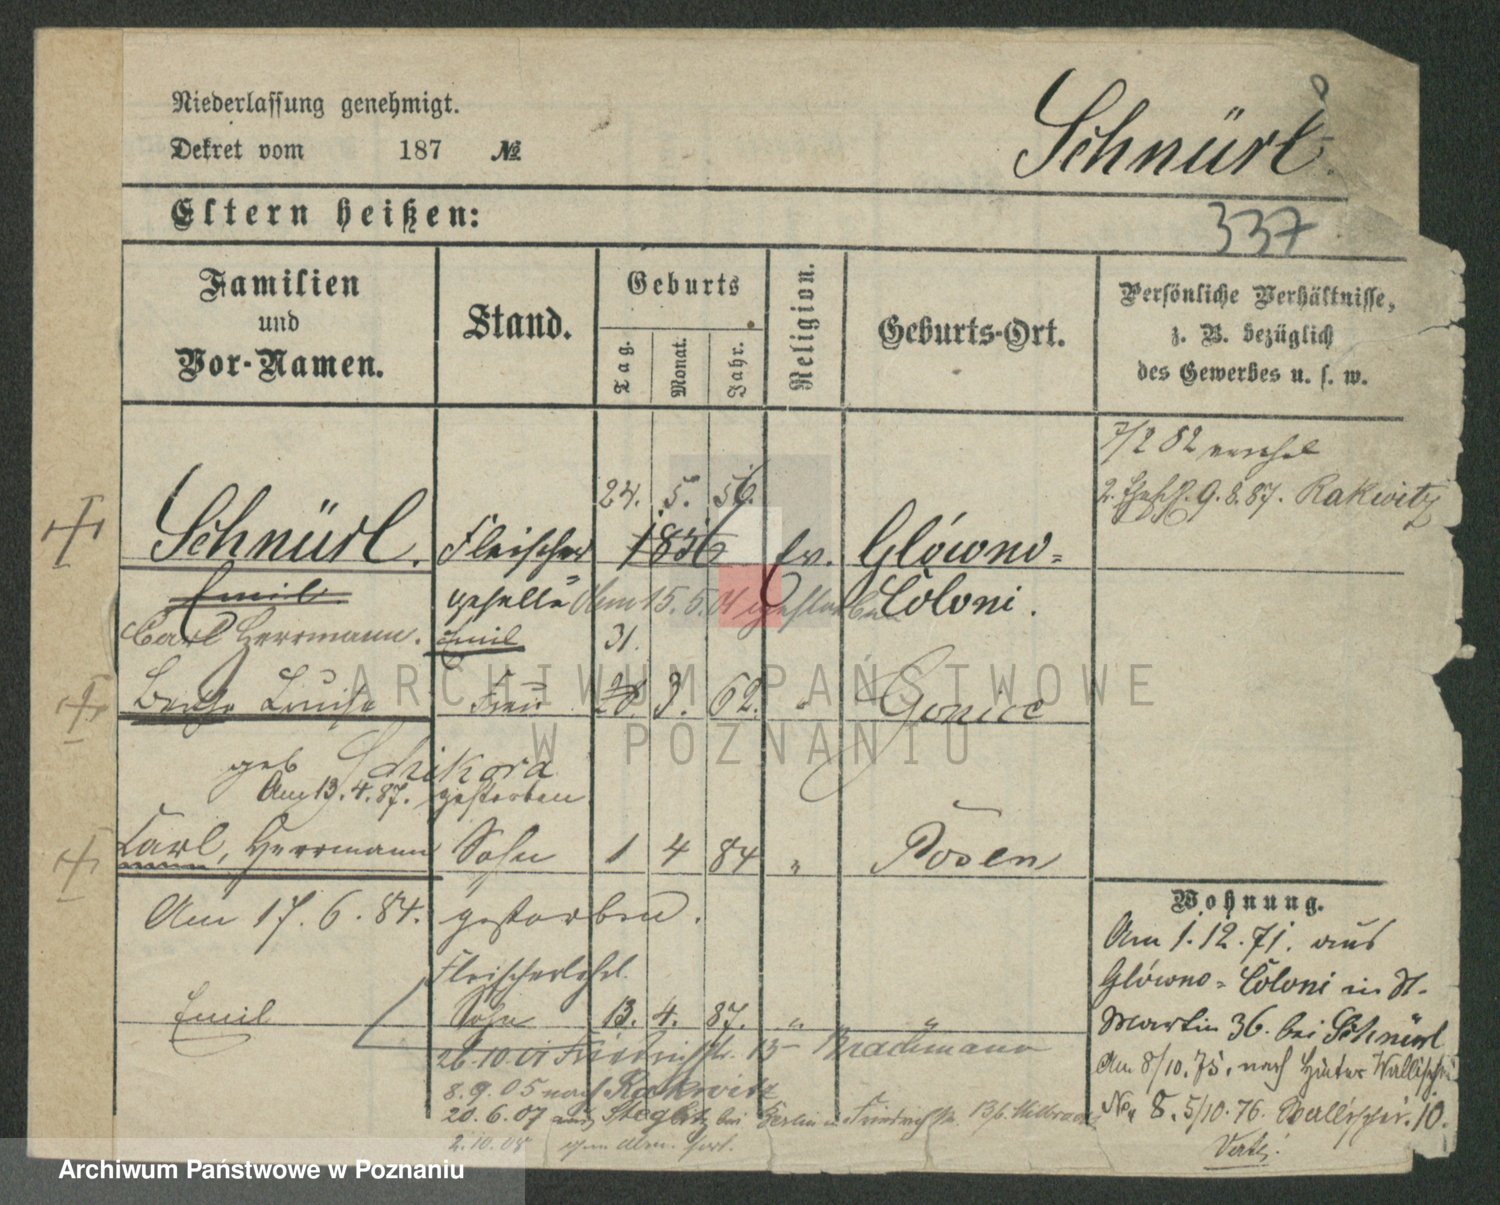 Niederlassung genehmigt.
Dekret vom 187 №
Schnürl.
337
Eltern heißen:
Familien und Vor-Namen.
Stand.
Geburts
Tag.
Monat.
Jahr.
Religion.
Geburts-Ort.
Persönliche Verhältnisse,
z. B. bezüglich
des Gewerbes u. s. w.
7/2 82
2. 9.8.87. Rakwitz
24. 5. 56.
Schnürl. Fleischer 1856 ev. Glówno-
Emil geselle Am 15.6.01 gestorben Coloni.
Carl Herrmann. Emil 31.
Luise Frau 28. 3. 62. " Gonice
geb Schikora
Am 13.4.87. gestorben
Carl, Herrmann Sohn 1 4 84 " Posen
Am 17.6.84. gestorben.
Fleischerlehrl.
Emil Sohn 13. 4. 87. " "
26.10.01 13 Brachmann
8.9.05 nach Rakwitz
20.6.07 aus Steglitz bei Berlin
2.10.08
Wohnung.
Am 1.12.71. aus
Glówno-Coloni in St.
Martin 36. bei Schnürl
Am 8/10.75. nach Hinter Wallischei
No. 8. 5/10.76. Wallischei. 10.
ARCHIWUM PAŃSTWOWE
W POZNANIU
Archiwum Państwowe w Poznaniu